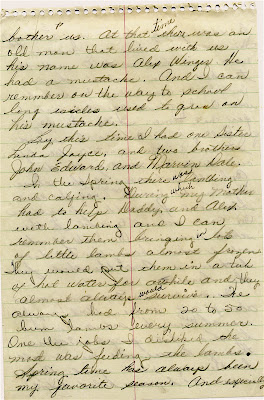 bother" us. At that time there was an
old man that lived with us
His name was Alex Wenger He
had a mustache. And I can
remmber on the way to school
long icicles used to grow on
his mustache.
By this time I had one sister
Linda Joyce, and two brothers
John Edward, and Marvin Dale.
In the Spring there was lambing
and calfing. During which my Mother
had to help Daddy, and Alex
with lambing and I can
remember them bringing in lots
of little lambs almost frozen
They would put them in a tub
of hot water for awhile and they
almost always would survive. We
always had from 20 to 30
bum lambs every summer.
One the jobs I disliked the
most was feeding the lambs.
Spring time has always been
my favorite season. And especially